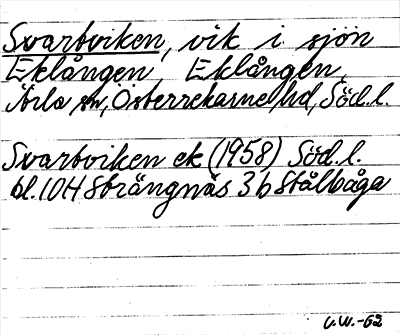 Svartviken, vik i sjön
Eklången, Eklången,
Ärla sn, Österrekarne hd, Söd. l.
Svartviken ek (1958) Söd. l.
bl. 10H Strängnäs 3b Stålbåga
U.W.-62